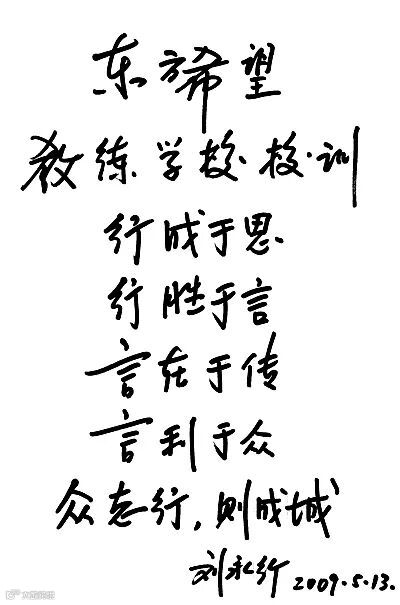 东方希望
教练学校·校·训
行成于思
行胜于言
言在于传
言利于众
众志行，则成城
刘永行 2009.5.13.